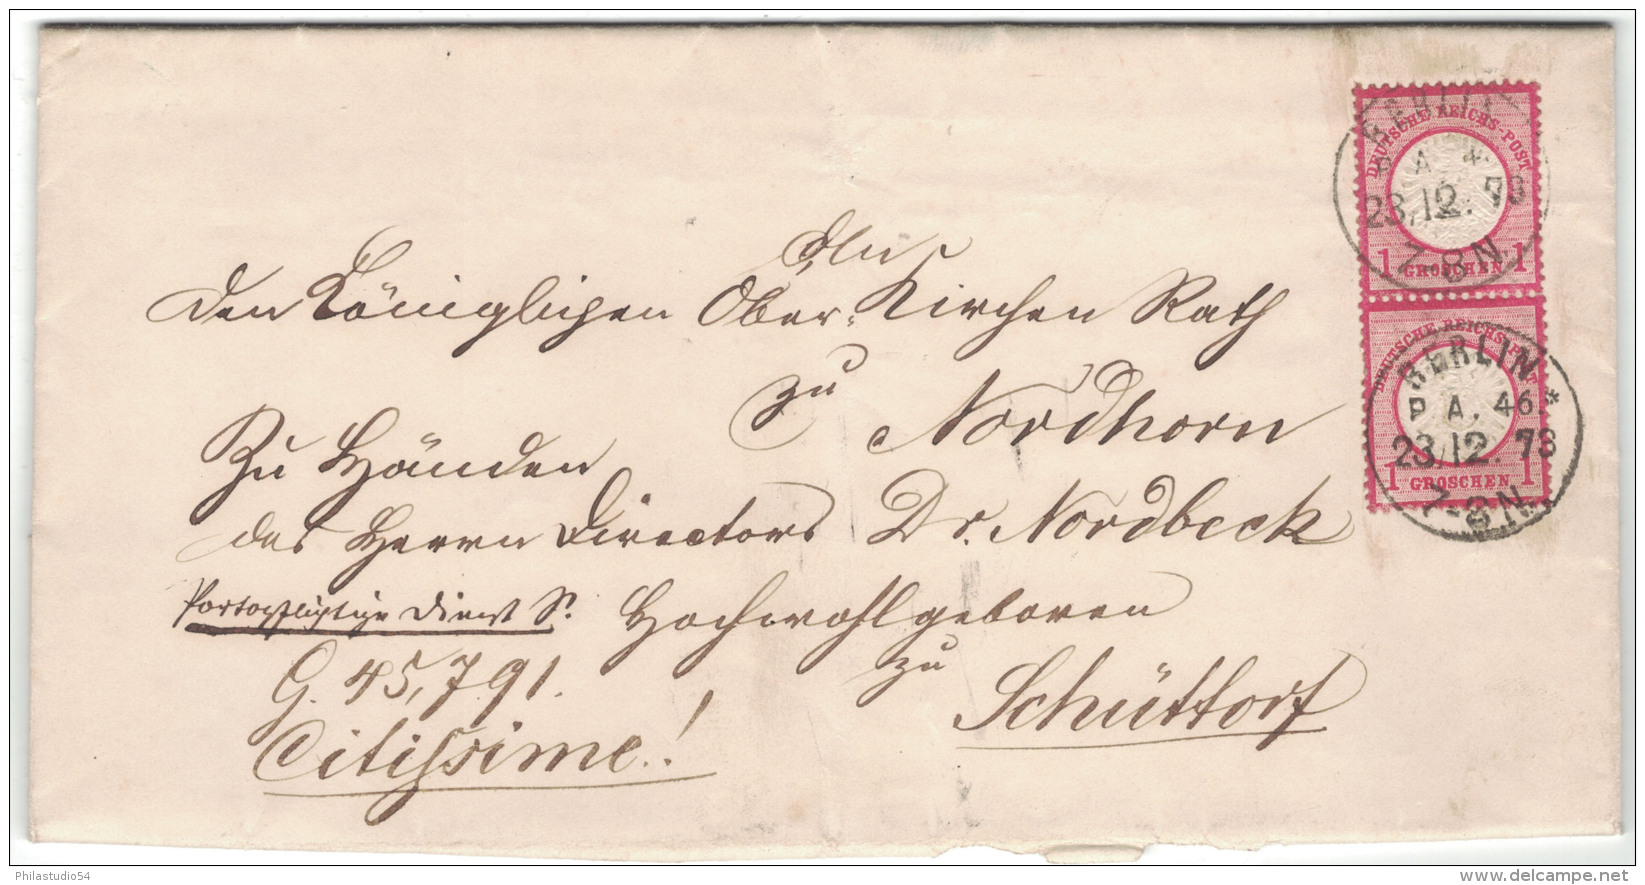 An
den Königlichen Ober-Kirchen Rath
zu
Nordhorn
Zu Händen
des Herrn Directors Dr. Nordbeck
Portopflichtige Dienst S. Hochwohlgeboren
G. 45,791.
zu
Citissime!
Schüttorf
DEUTSCHE REICHS-POST
1 GROSCHEN 1
A. *
23,12.73
7-8N.
DEUTSCHE REICHS-POST
1 GROSCHEN 1
BERLIN
P. A. 46*
23,12.73
7-8N.
Philastudio54
delcampe.net